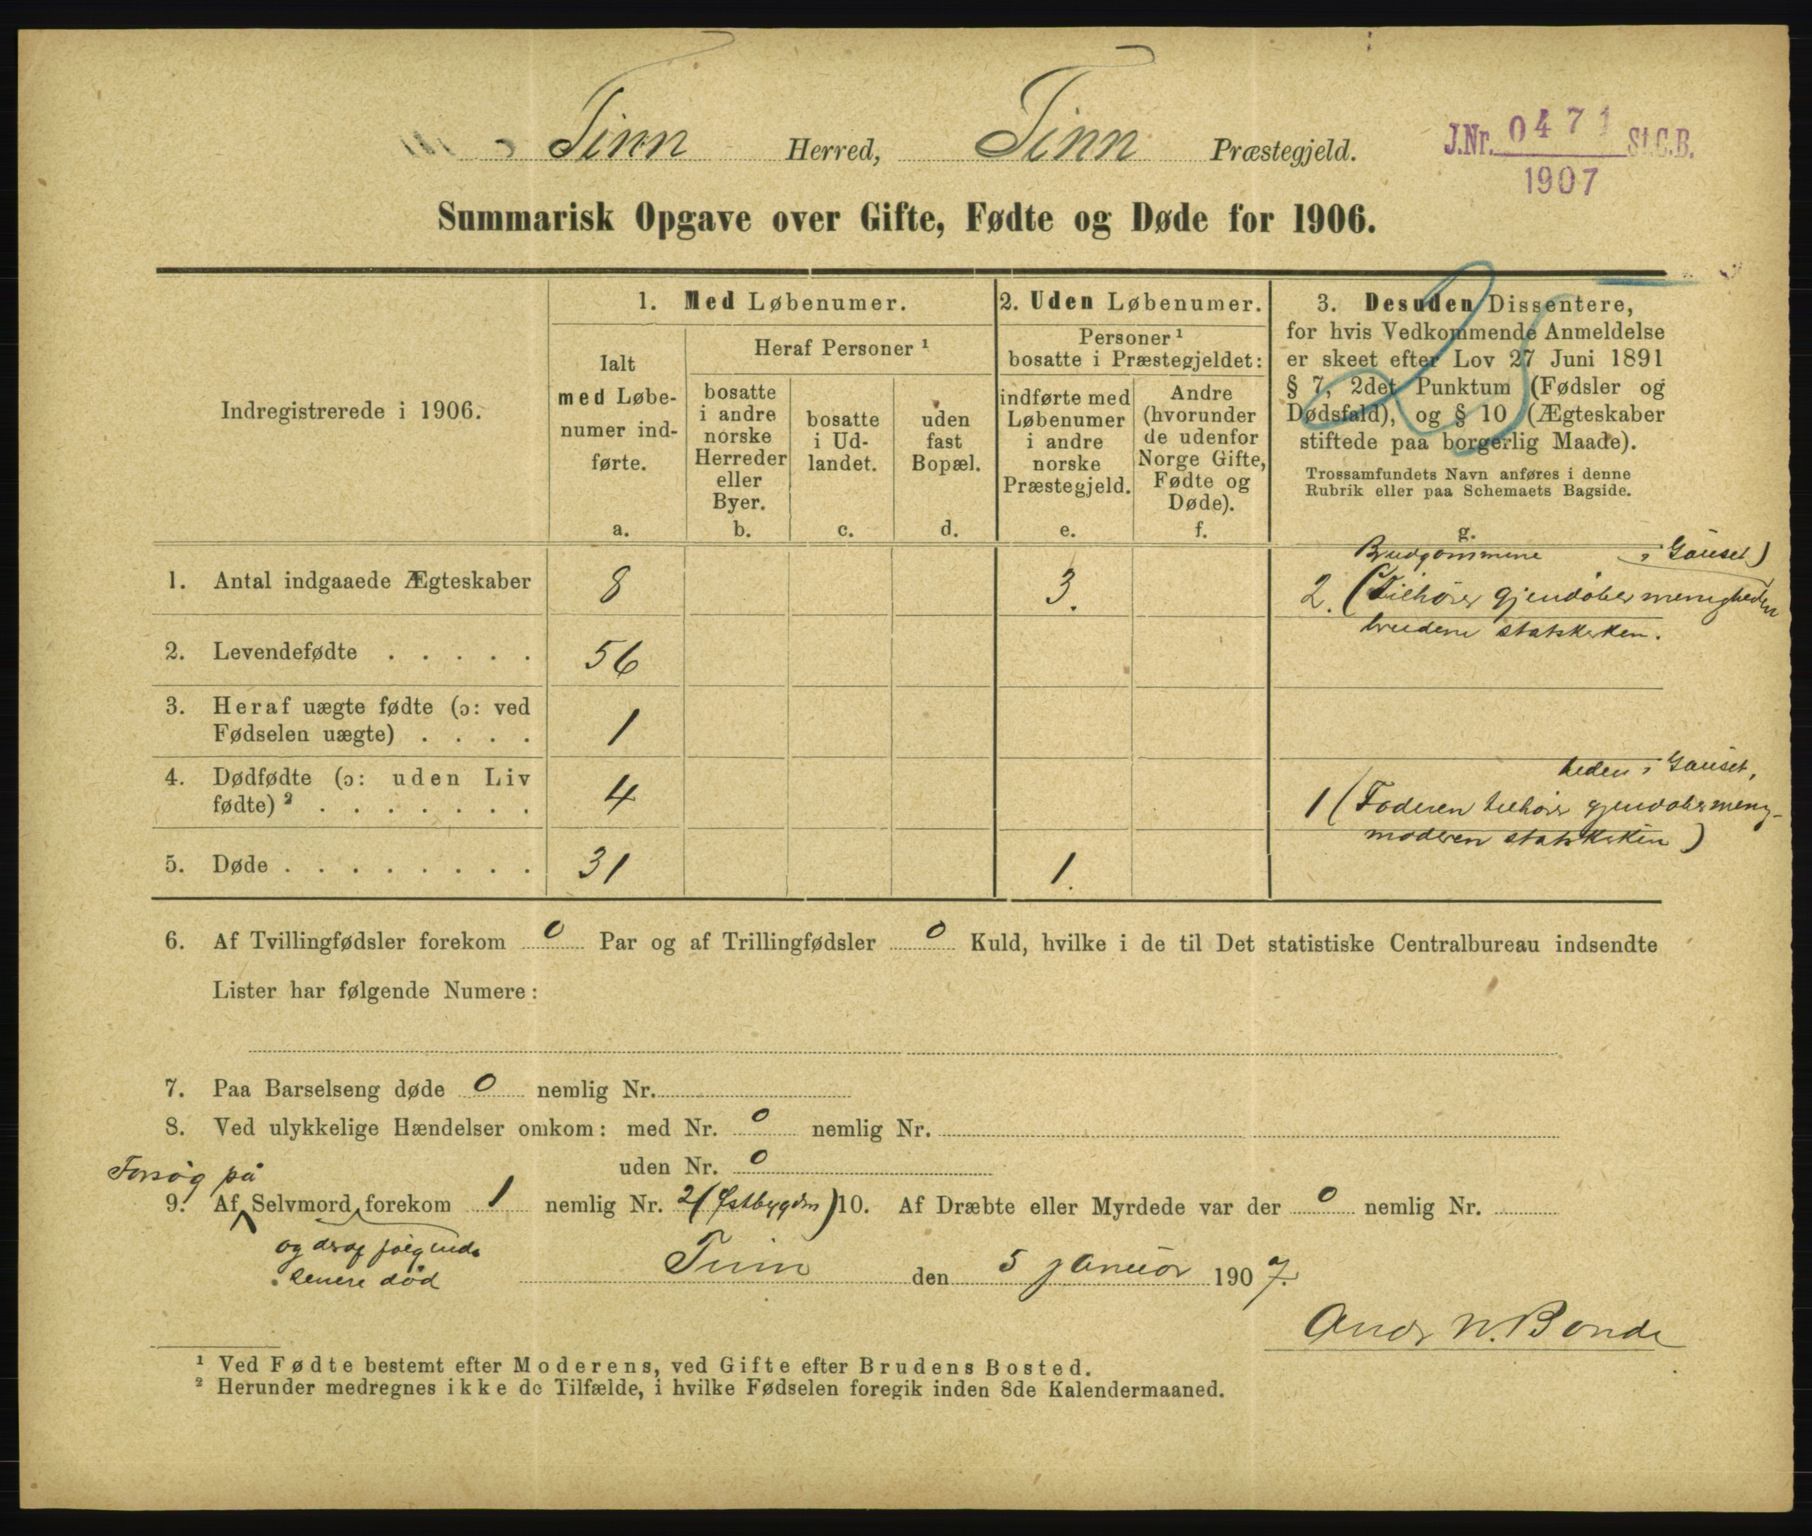 Tinn Herred, Tinn Præstegjeld.
J.Nr. 0471 St.C.B.
1907
Summarisk Opgave over Gifte, Fødte og Døde for 1906.
Indregistrerede i 1906.
1. Med Løbenumer.
Ialt
med Løbe-
numer ind-
førte.
a.
Heraf Personer ¹
bosatte
i andre
norske
Herreder
eller
Byer.
b.
bosatte
i Ud-
landet.
c.
uden
fast
Bopæl.
d.
2. Uden Løbenumer.
Personer ¹
bosatte i Præstegjeldet:
indførte med
Løbenumer
i andre
norske
Præstegjeld.
e.
Andre
(hvorunder
de udenfor
Norge Gifte,
Fødte og
Døde).
f.
3. Desuden Dissentere,
for hvis Vedkommende Anmeldelse
er skeet efter Lov 27 Juni 1891
§ 7, 2det Punktum (Fødsler og
Dødsfald), og § 10 (Ægteskaber
stiftede paa borgerlig Maade).
Trossamfundets Navn anføres i denne
Rubrik eller paa Schemaets Bagside.
g.
Brudgommene i Gauset)
1. Antal indgaaede Ægteskaber 8 3. 2. (tilhører gjendøber menigheden
bruden statskirken.
2. Levendefødte . . . . . 56
3. Heraf uægte fødte (ɔ: ved
Fødselen uægte) . . . . 1
heden i Gauset,
4. Dødfødte (ɔ: uden Liv
fødte) ² . . . . . . . 4 1 (Faderen tilhører gjendøbermenig-
moderen statskirken)
5. Døde . . . . . . . . 31 1.
6. Af Tvillingfødsler forekom 0 Par og af Trillingfødsler 0 Kuld, hvilke i de til Det statistiske Centralbureau indsendte
Lister har følgende Numere:
7. Paa Barselseng døde 0 nemlig Nr.
8. Ved ulykkelige Hændelser omkom: med Nr. 0 nemlig Nr.
uden Nr. 0
Forsøg på
9. Af Selvmord forekom 1 nemlig Nr. 2 (Østbygden) 10. Af Dræbte eller Myrdede var der 0 nemlig Nr.
og deraf følgende
senere død
Tinn den 5 januar 1907.
Andr N. Bonde
¹ Ved Fødte bestemt efter Moderens, ved Gifte efter Brudens Bosted.
² Herunder medregnes ikke de Tilfælde, i hvilke Fødselen foregik inden 8de Kalendermaaned.